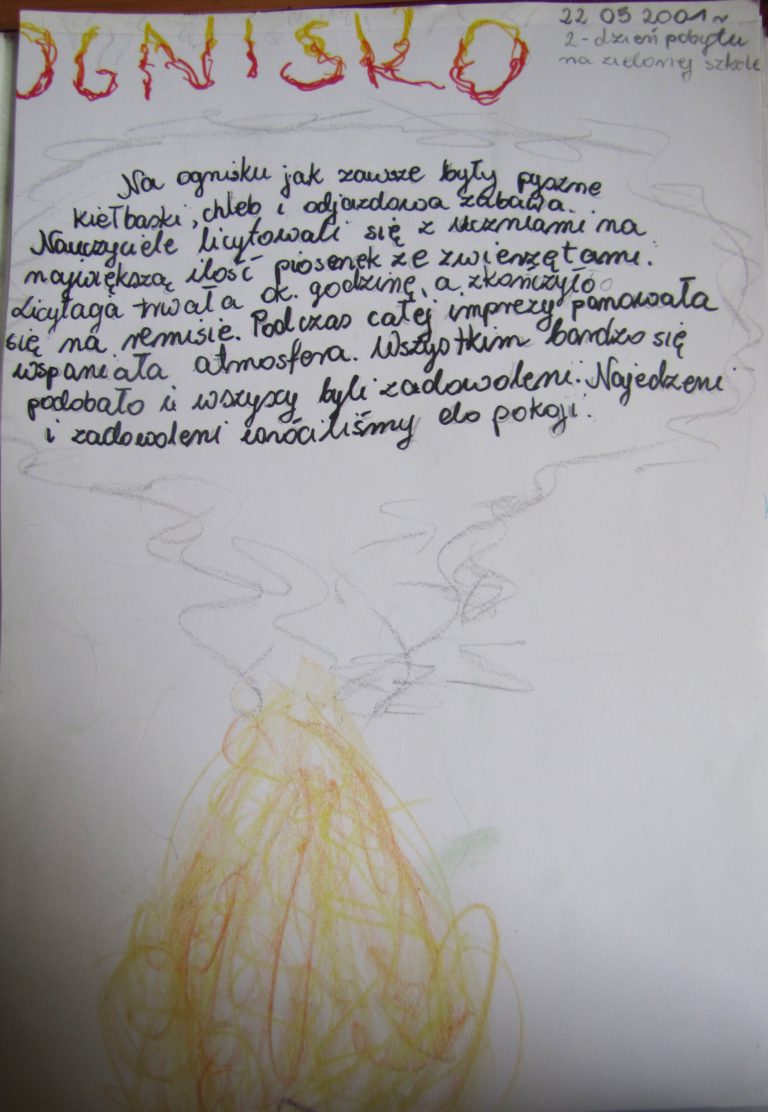 OGNISKO
22 05 2001r.
2-dzień pobytu
na zielonej szkole
Na ognisku jak zawsze były pyszne
kiełbaski, chleb i odjazdowa zabawa.
Nauczyciele licytowali się z uczniami na
największą ilość piosenek ze zwierzętami.
Licytacja trwała ok. godzinę, a zkończyło
się na remisie. Podczas całej imprezy panowała
wspaniała atmosfera. Wszystkim bardzo się
podobało i wszyscy byli zadowoleni. Najedzeni
i zadowoleni wróciliśmy do pokoji.